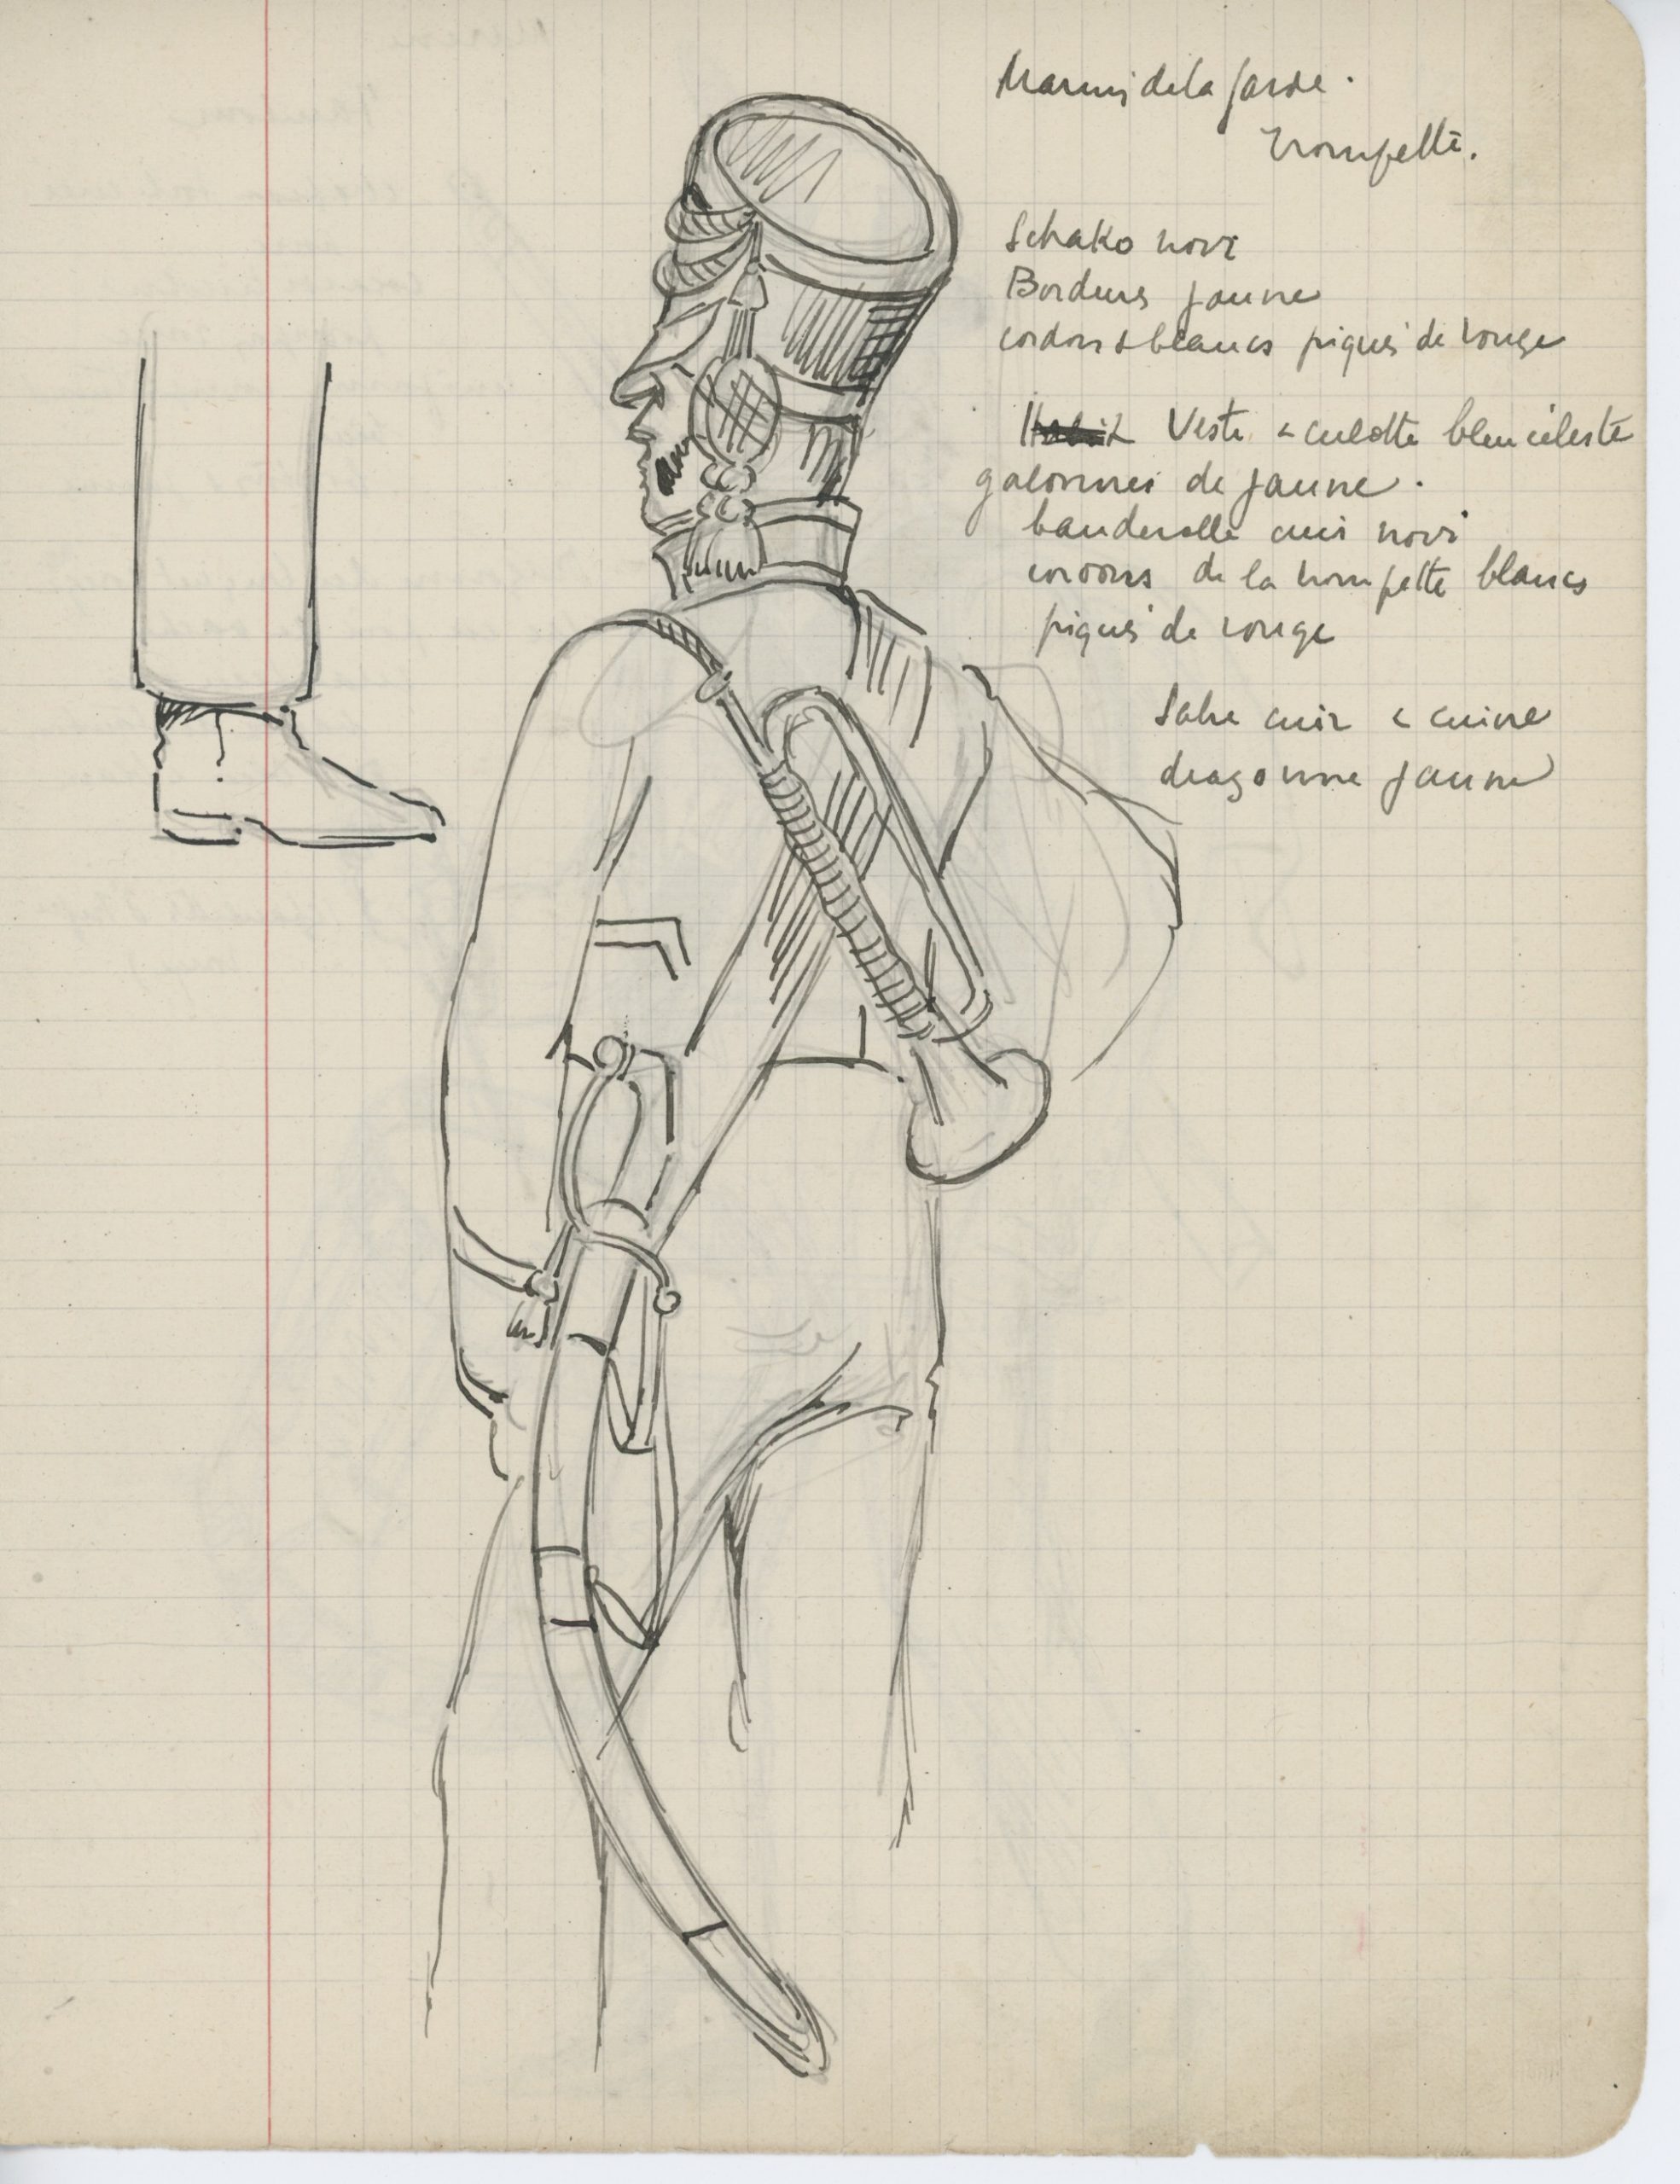 Marins de la garde.
Trompette.
Schako noir
Bordures jaune
cordons blancs piqués de rouge
Habit Veste & culotte bleu céleste
galonnés de jaune.
banderolle cuir noir
cordons de la trompette blancs
piqués de rouge
Sabre cuir & cuivre
dragonne jaune